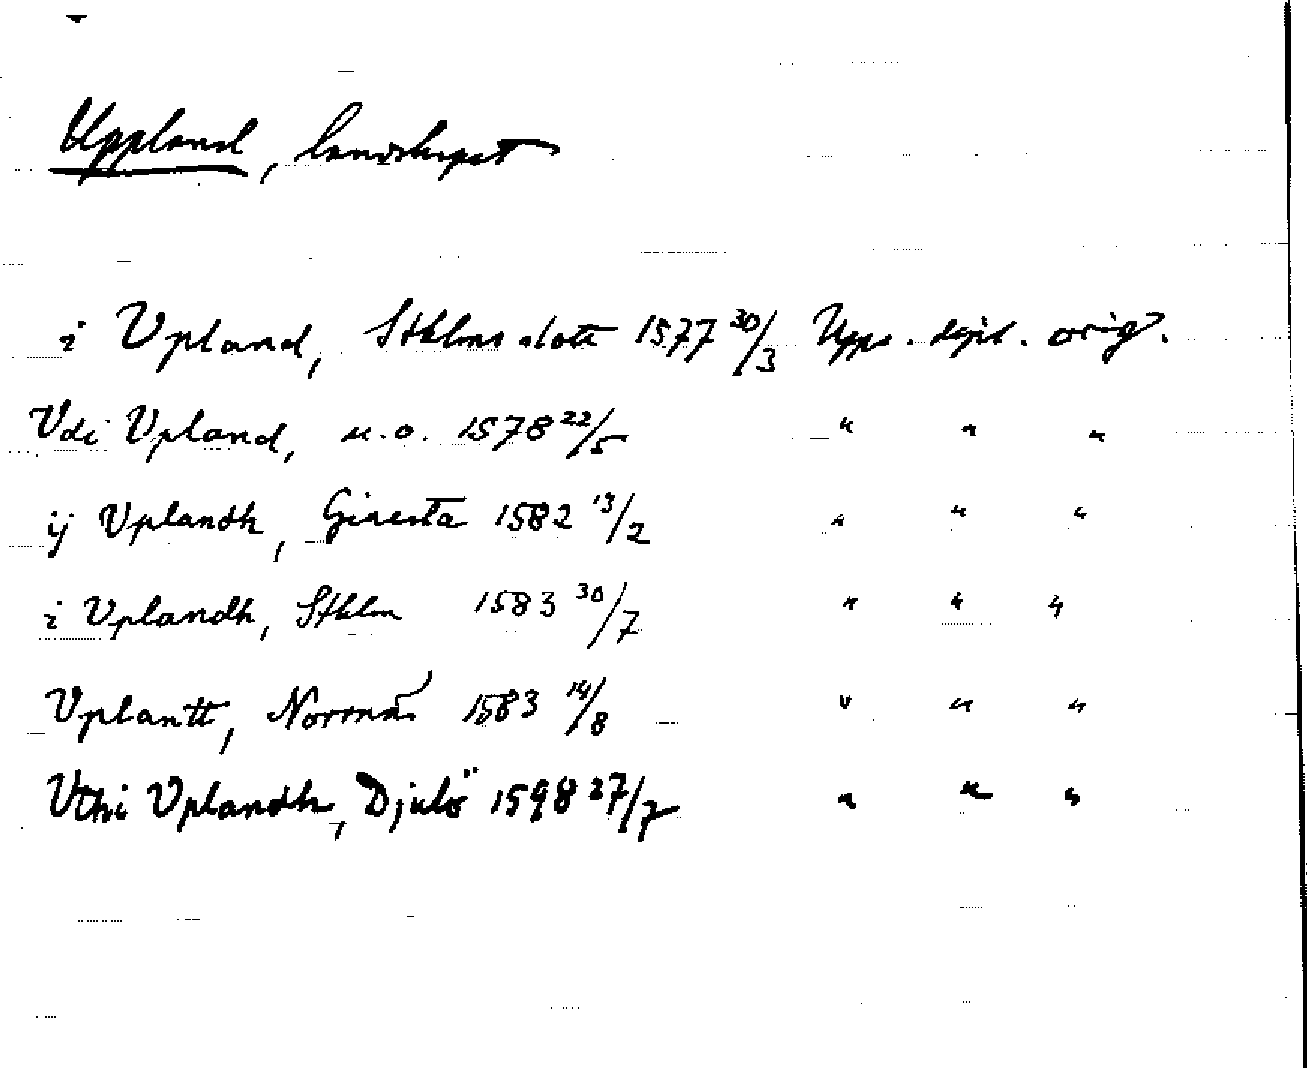 Uppland, landskapet
i Vpland, Sthlms slott 1577 30/3 Upps. dipl. orig.
Vdi Vpland, u.o. 1578 22/5 " " "
ij Vplandh, Giresta 1582 13/2 " " "
i Vplandh, Sthlm 1583 30/7 " " "
Vplantt, 1583 14/8 " " "
Vthi Vplandh, Djulö 1598 27/7 " " "